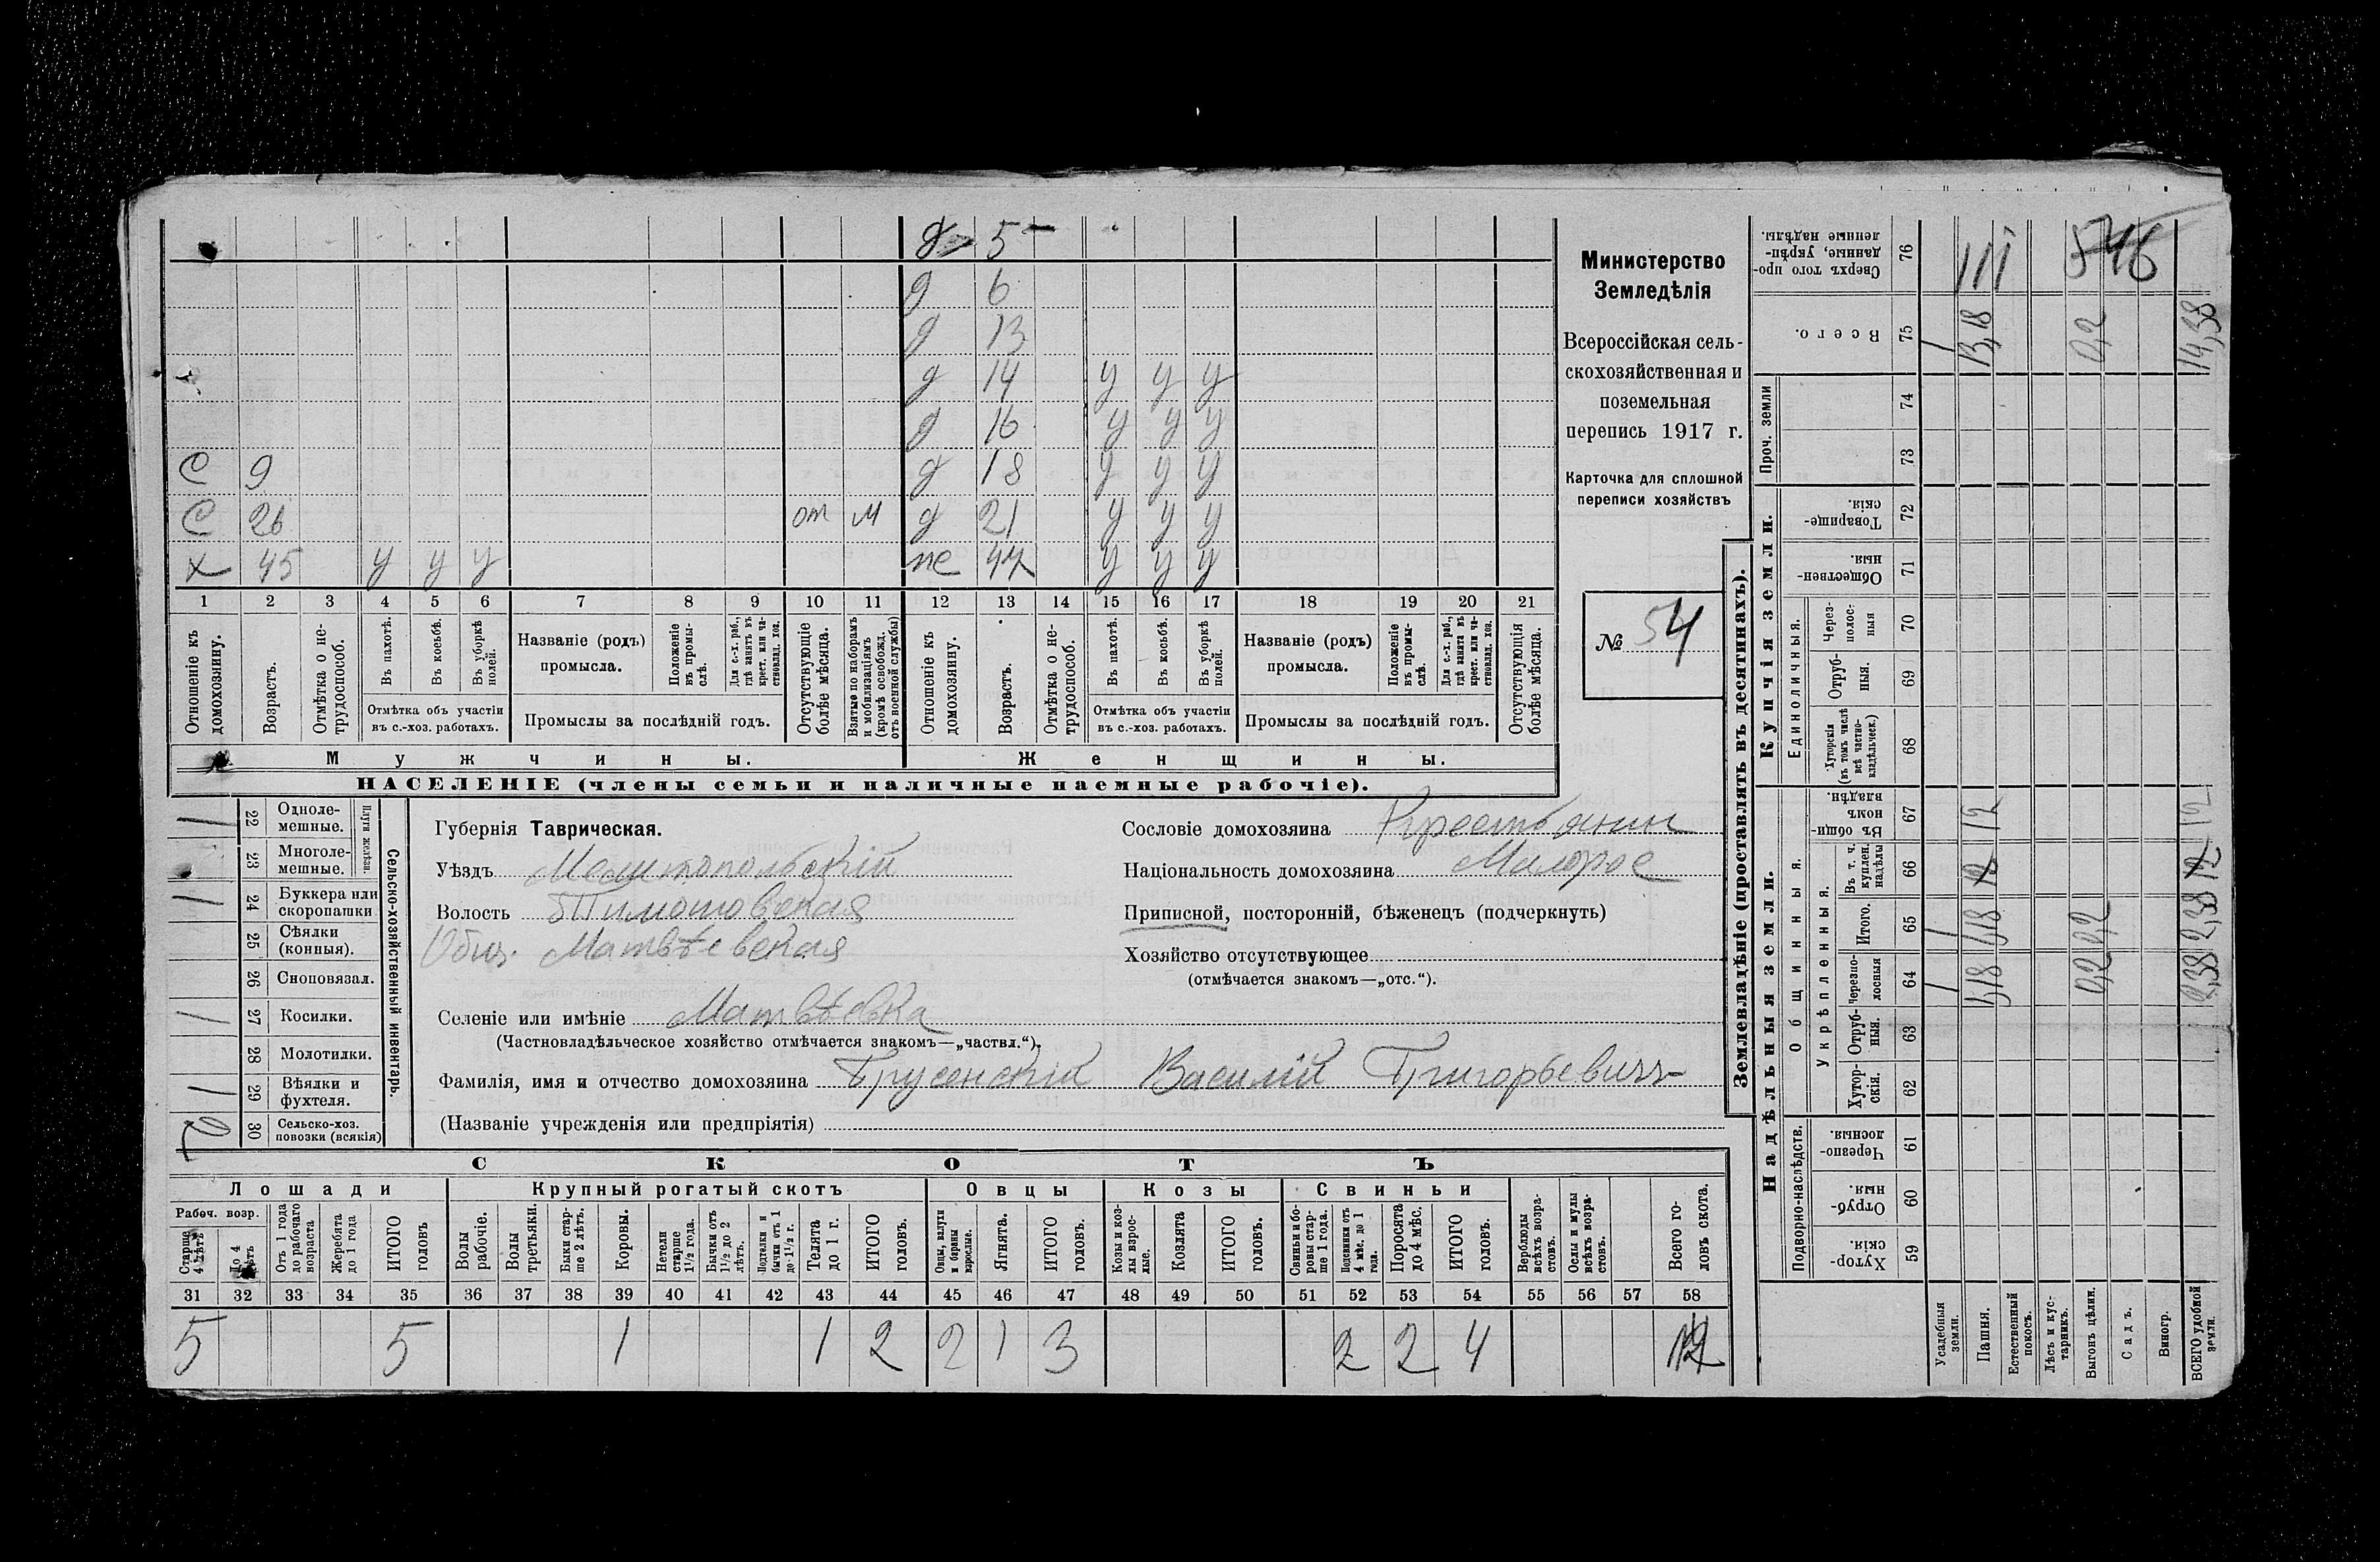 д 5
д 6
д 13
д 14 у у у
д 16 у у у
С 9 д 18 у у у
С 26 от м д 21 у у у
х 45 у у у же 44 у у у
1 2 3 4 5 6 7 8 9 10 11 12 13 14 15 16 17 18 19 20 21
Отношеніе къ домохозяину.
Возрастъ.
Отмѣтка о нетрудоспособ.
Въ пахотѣ.
Въ косьбѣ.
Въ уборкѣ полей.
Отмѣтка объ участіи въ с.-хоз. работахъ.
Названіе (родъ) промысла.
Положеніе въ промыслѣ.
Для с.-х. раб., гдѣ занятъ въ крест. или частновлад. хоз.
Промыслы за послѣдній годъ.
Отсутствующіе болѣе мѣсяца.
Взятые по наборамъ и мобилизаціямъ (кромѣ освобожд. отъ военной службы)
Отношеніе къ домохозяину.
Возрастъ.
Отмѣтка о нетрудоспособ.
Въ пахотѣ.
Въ косьбѣ.
Въ уборкѣ полей.
Отмѣтка объ участіи въ с.-хоз. работахъ.
Названіе (родъ) промысла.
Положеніе въ промыслѣ.
Для с.-х. раб., гдѣ занята въ крест. или частновлад. хоз.
Промыслы за послѣдній годъ.
Отсутствующія болѣе мѣсяца.
Мужчины. Женщины.
НАСЕЛЕНІЕ (члены семьи и наличные наемные рабочіе).
Министерство
Земледѣлія
Всероссійская сель-
скохозяйственная и
поземельная
перепись 1917 г.
Карточка для сплошной
переписи хозяйствъ
№ 54
Сельско-хозяйственный инвентарь.
Плуги желѣзн.
22 Однолемешные. 1
23 Многолемешные.
24 Буккера или скоропашки 1
25 Сѣялки (конныя).
26 Сноповязал.
27 Косилки. 1
28 Молотилки.
29 Вѣялки и фухтеля. 1
30 Сельско-хоз. повозки (всякія)
Губернія Таврическая.
Уѣздъ Мелитопольскій
Волость Тимошовская
Общ. Матвѣевская
Селеніе или имѣніе Матвѣевка
(Частновладѣльческое хозяйство отмѣчается знакомъ—„частвл.“).
Фамилія, имя и отчество домохозяина Трусенскій Василій Григорьевичъ
(Названіе учрежденія или предпріятія)
Сословіе домохозяина Крестьянин
Національность домохозяина Малорос
Приписной, посторонній, бѣженецъ (подчеркнуть)
Хозяйство отсутствующее
(отмѣчается знакомъ—„отс.“).
СКОТЪ
Лошади Крупный рогатый скотъ Овцы Козы Свиньи
Рабоч. возр.
Старше 4 лѣтъ
До 4 лѣтъ
Отъ 1 года до рабочаго возраста
Жеребята до 1 года
ИТОГО головъ
Волы рабочіе.
Волы третьяки.
Быки старше 2 лѣтъ.
Коровы.
Нетели старше 1½ года.
Бычки отъ 1½ до 2 лѣтъ.
Подтелки и бычки отъ 1 до 1½ г.
Телята до 1 г.
ИТОГО головъ.
Овцы, валухи и бараны взрослые.
Ягнята.
ИТОГО головъ.
Козы и козлы взрослые.
Козлята
ИТОГО головъ.
Свиньи и боровы старше 1 года.
Подсвинки отъ 4 мѣс. до 1 года.
Поросята до 4 мѣс.
ИТОГО головъ.
Верблюды всѣхъ возрастовъ.
Ослы и мулы всѣхъ возрастовъ.
Всего головъ скота.
31 32 33 34 35 36 37 38 39 40 41 42 43 44 45 46 47 48 49 50 51 52 53 54 55 56 57 58
5 5 1 1 2 2 1 3 2 2 4
Землевладѣніе (проставлять въ десятинахъ).
Надѣльныя земли. Купчія земли. Проч. земли
Подворно-наслѣдств.
Общинныя
Укрѣпленныя.
Единоличныя.
76 Сверхъ того проданные, укрѣпленные надѣлы. 111 546
75 Всего. 1 13,18 0,2 14,38
74
73
72 Товарищескія.
71 Общественныя.
70 Черезполосныя
69 Отрубныя.
68 Хуторскія (въ томъ числѣ всѣ частновладѣльческ.)
67 Въ общинномъ владѣн. 12 12
66 Въ т. ч. куплен. надѣлы 12 12
65 Итого. 1 1,18 0,2 2,38
64 Черезполосныя 1 1,18 0,2 2,38
63 Отрубныя.
62 Хуторскія.
61 Черезполосныя.
60 Отрубныя.
59 Хуторскія.
Усадебныя земли.
Пашня.
Естественный покосъ.
Лѣсъ и кустарникъ.
Выгонъ цѣлин.
Садъ.
Виногр.
ВСЕГО удобной земли.